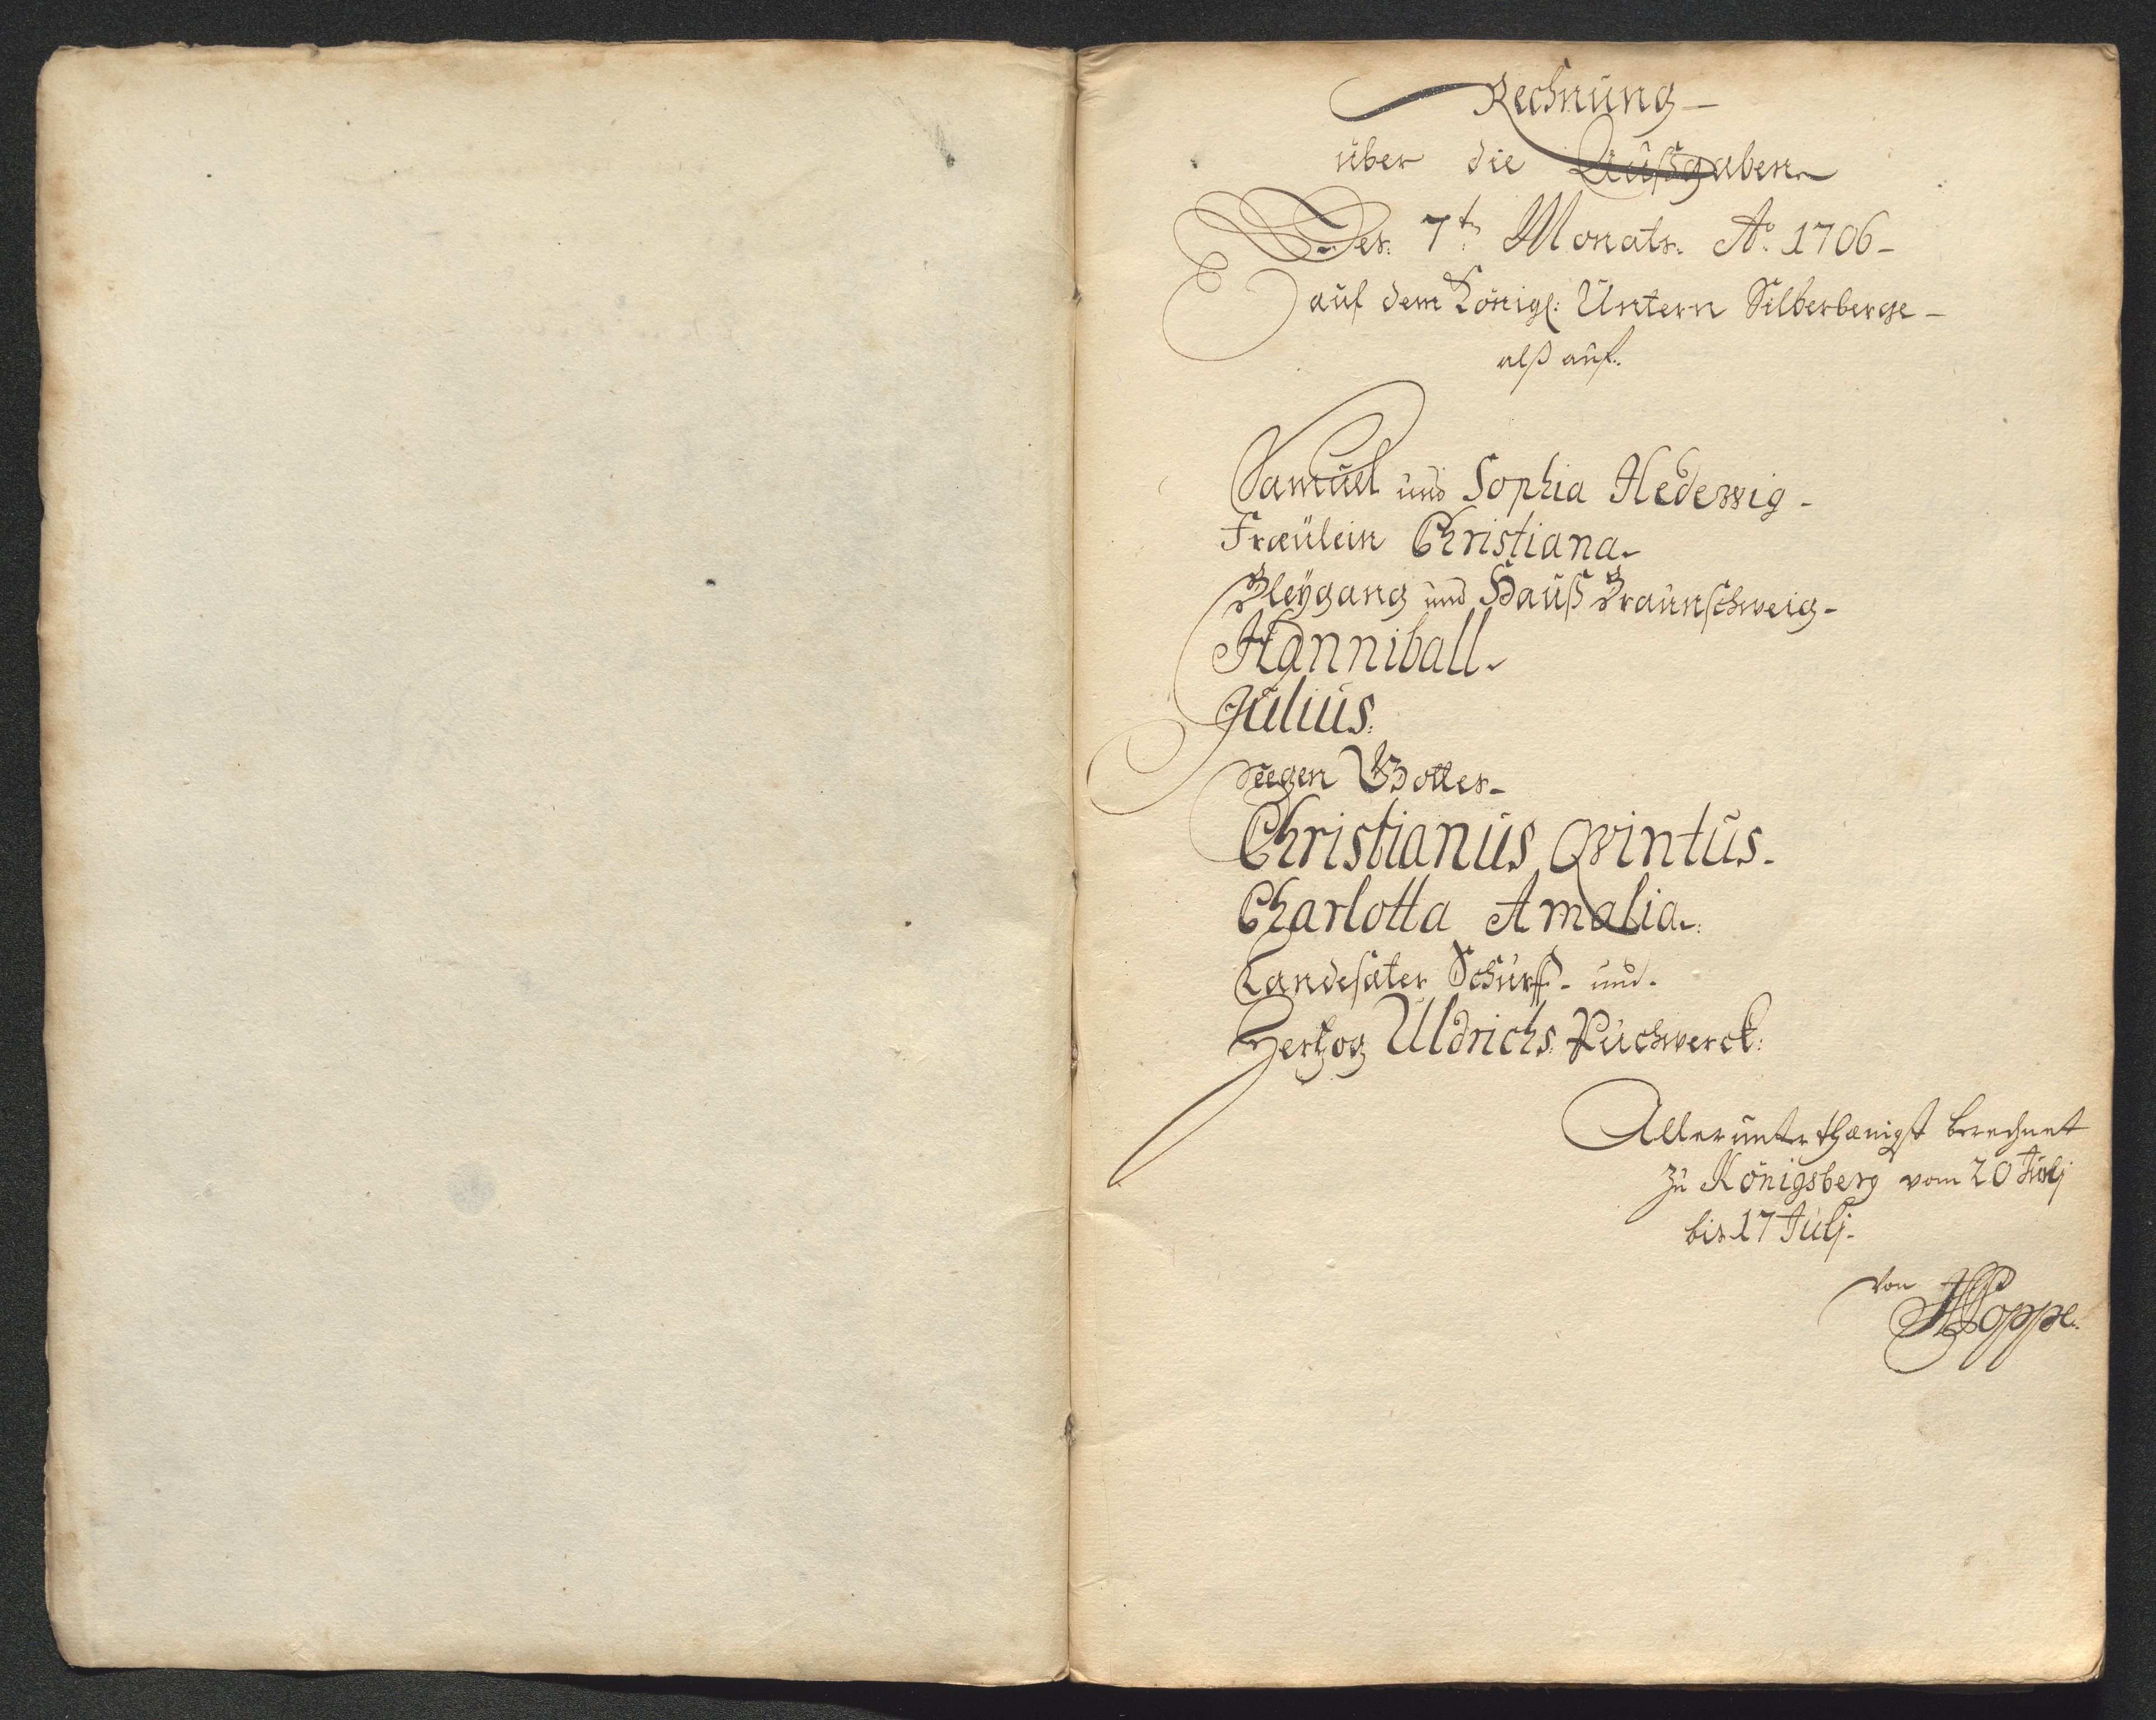 Rechnung
über die Außgaben
Des 7t Monats Ao 1706
auf dem Königl: Untern Silberberge
alß auf.
Samuel und Sophia Hedewig
Fraülein Christiana
Bleÿgang und Hauß Braunschweig
Hanniball
Julius
Seegen Gottes
Christianus Qvintus
Charlotta Amalia
Landesäter Schurff und
Hertzog Uldrichs Puchwerck
Allerunterthänigst berechnet
zu Königsberg vom 20 Junj
bis 17 Julj
von
Poppe